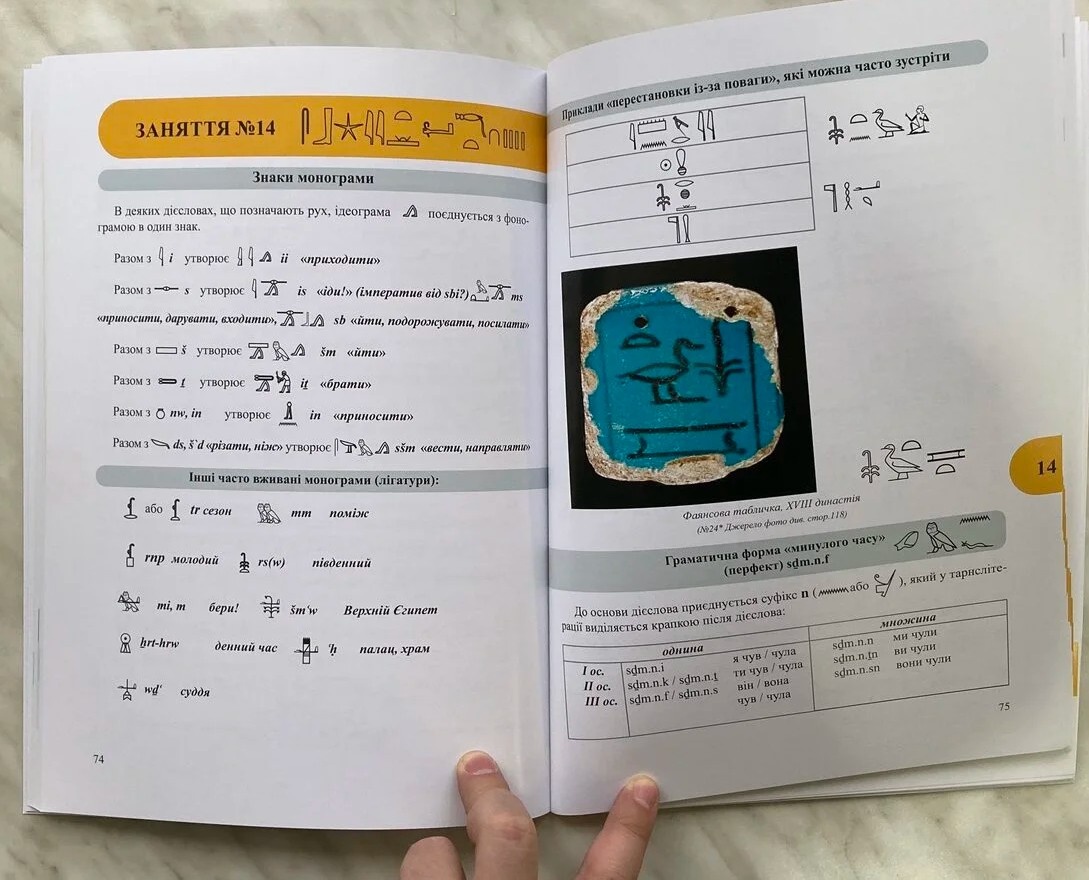 ЗАНЯТТЯ №14
Знаки монограми
В деяких дієсловах, що позначають рух, ідеограма поєднується з фоно-
грамою в один знак.
Разом з i утворює ii «приходити»
Разом з s утворює is «іди!» (імператив від sbi?) ms
«приносити, дарувати, входити», sb «йти, подорожувати, посилати»
Разом з š утворює šm «йти»
Разом з ṯ утворює iṯ «брати»
Разом з nw, in утворює in «приносити»
Разом з ds, šʿd «різати, ніж» утворює sšm «вести, направляти»
Інші часто вживані монограми (лігатури):
або tr сезон mm поміж
rnp молодий rs(w) південний
mi, m бери! šmʿw Верхній Єгипет
ẖrt-hrw денний час ʿḥ палац, храм
wḏʿ суддя
74
Приклади «перестановки із-за поваги», які можна часто зустріти
Фаянсова табличка, XVIII династія
(№24* Джерело фото див. стор.118)
14
Граматична форма «минулого часу»
(перфект) sḏm.n.f
До основи дієслова приєднується суфікс n ( або ), який у тарнсліте-
рації виділяється крапкою після дієслова:
однина множина
I ос. sḏm.n.i я чув / чула sḏm.n.n ми чули
II ос. sḏm.n.k / sḏm.n.ṯ ти чув / чула sḏm.n.ṯn ви чули
III ос. sḏm.n.f / sḏm.n.s він / вона sḏm.n.sn вони чули
чув / чула
75